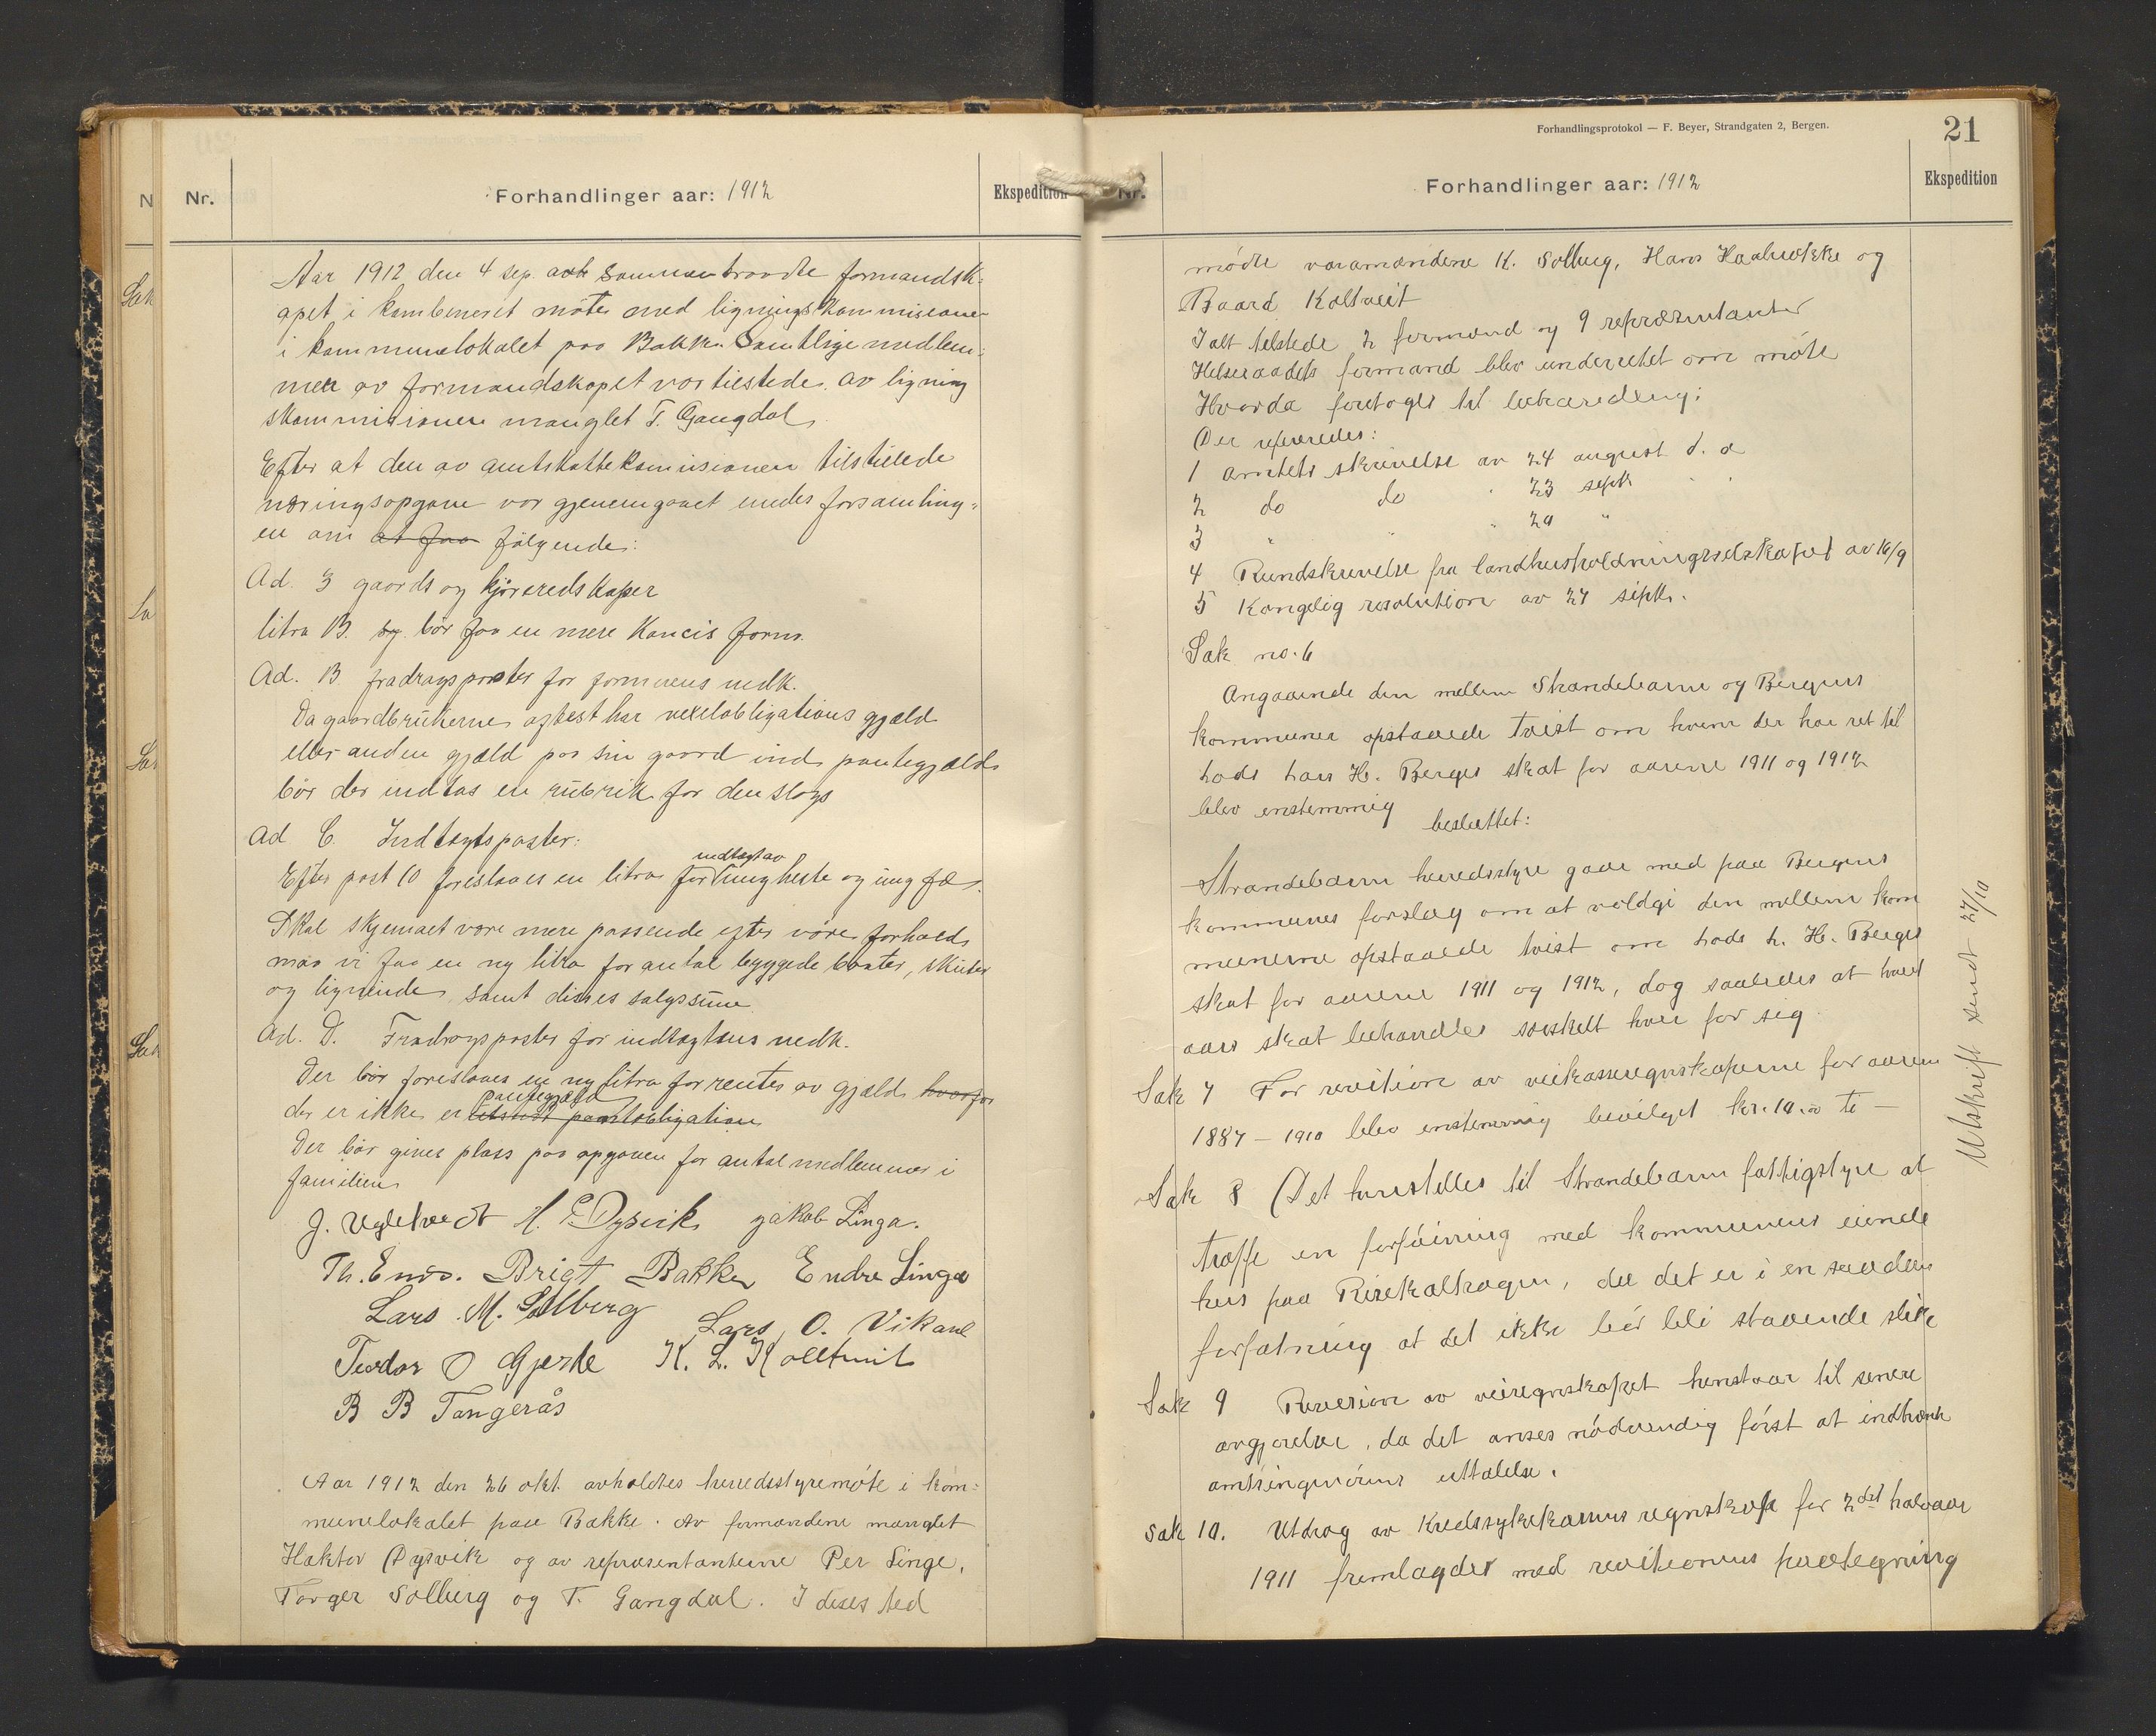 Nr.
Forhandlinger aar: 1912
Ekspedition
Aar 1912 den 4 sep. sammentraadte formandsk-
apet i kombeneret møte med ligningskommisionen
i kommunelokalet paa Bakke. Samtlige medlem-
mer av formandskapet var tilstede. av ligning
skommisionen manglet T. Gangdal
Efter at den av amtskattekomisionen tilstillede
næringsopgave var gjenemgaaet enedes forsamling-
en om at faa følgende:
Ad. 3 gaards og kjøreredskaper
litra B. bør faa en mere koncis form.
Ad. B fradragsposter for formuens vedk.
Da gaardbrukerne oftest har vexelobligations gjæld
eller anden gjæld paa sin gaard end pantegjæld
bør der indtas en rubrik for den slags
Ad C. Indtægtsposter:
indtægt av
Efter post 10 foreslaaes en litra for unghester og ungfæ.
Skal skjemaet være mere passende efter vore forhold
maa vi faa en ny litra for antal byggede baater, skuter
og lignende samt disses salgssum
Ad. D. Fradragsposter for indtægtens vedk.
Der bør foreslaaes en ny litra for renter av gjæld hvorfor
pantegjæld
der er ikke er utstedt pantobligation
Der bør gives plass paa opgaven for antal medlemmer i
familien
J. Uglehvedt H. P. Dysvik Jakob Linga.
Th. Enes. Brigt Bakke Endre Linga
Lars M. Solberg Lars O. Vikane
Teodor O Gjerde K. L. Kolltveit
B B Tangerås
Aar 1912 den 26 okt. avholdtes herredsstyremøte i kom-
munelokalet paa Bakke. Av formændene manglet
Haktor Dysvik og av repræsentanterne Per Linge,
Torger Solberg og T. Gangdal. I deses sted
Forhandlingsprotokol — F. Beyer, Strandgaten 2, Bergen.
21
Nr.
Forhandlinger aar: 1912
Ekspedition
mødte varamændene K. Solberg, Hans Haabrekke og
Baard Koltveit
Ialt tilstede 2 formænd og 9 repræsentanter
Helseraadets formand blev underrettet om møte
Hvorda foretoges til behandling:
Der refereredes:
1 amtets skrivelse av 24 august d. a
2 do do " 23 sept. " "
3 " " " 20 "
4 Rundskrivelse fra landhusholdningsselskapet av 16/9
5 Kongelig resolution av 27 sept.
Sak no. 6
Angaaende den mellem Strandebarm og Bergens
kommuner opstaaede tvist om hvem der har ret til
hods hans H. Berges skat for aarene 1911 og 1912
blev enstemmig
besluttet:
Strandebarm herredsstyre gaar med paa Bergens
kommunes forslag om at voldgi den mellem kom
munerne opstaaede tvist om hods h. H. Berges
skat for aarene 1911 og 1912, dog saaledes at hvert
aars skat behandles særskelt hver for sig
Sak 7 For revition av veikasseregnskaperne for aarene
1887 – 1910 blev enstemmig bevilget kr. 10.00 ti –
Sak 8 Det henstilles til Strandebarm fattigstyre at
træffe en forføining med kommunens eiende
hus paa Risekalhagen, da det er i en saadan
forfatning at det ikke bør bli staaende slik
Sak 9 Revesion av veiregnskapet henstaar til senere
avgjørelse, da det anses nødvendig først at indhente
amtsingeniørens uttalelse.
Sak 10. Utdrag av Kredssykekassens regnskap for 2det halvaar
1911 fremlagdes med revitionens paategning
Utskrift sendt 27/10